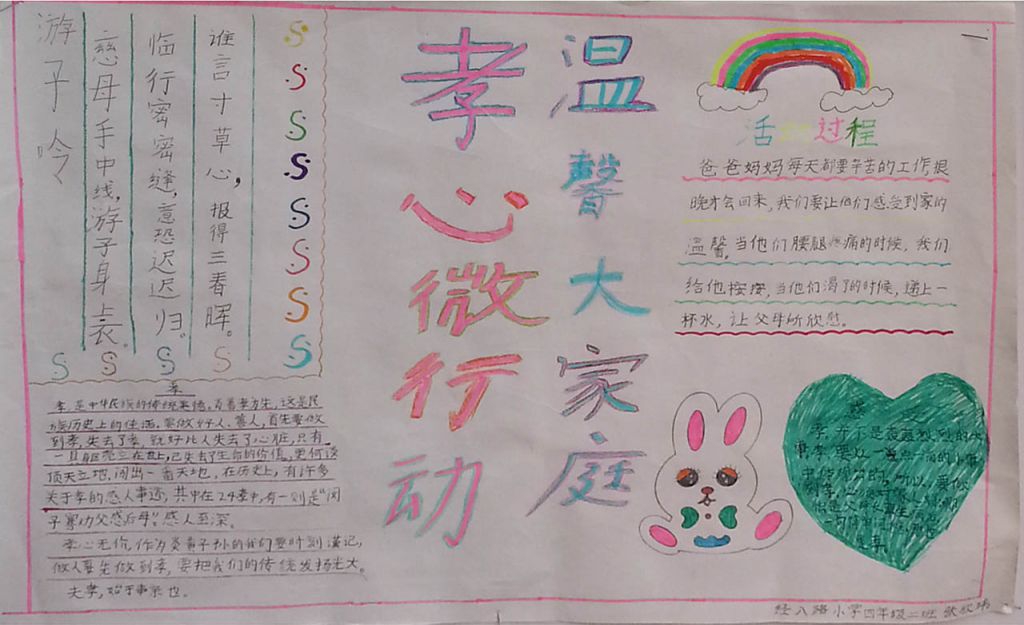 游子吟
慈母手中线,游子身上衣。
临行密密缝,意恐迟迟归。
谁言寸草心,报得三春晖。
孝心微行动
温馨大家庭
活动过程
爸爸妈妈每天都要辛苦的工作,很
晚才会回来,我们要让他们感受到家的
温馨。当他们腰腿疼痛的时候,我们
给他按按,当他们渴了的时候,递上一
杯水,让父母所欣慰。
孝
孝是中华民族的传统美德。百善孝为先,这是民
族历史上的佳话。要做好人、善人,首先要做
到孝,失去了孝,就好比人失去了心脏,只有
一具躯壳立在世上,已失去了生命的价值,更何谈
顶天立地,闯出一番天地,在历史上,有许多
关于孝的感人事迹,其中在24孝中,有一则是“闵
子骞劝父感后母”。感人至深。
孝心无价,作为炎黄子孙的我们要时刻谨记,
做人要先做到孝,要把我们的传统发扬光大。
夫孝,始于事亲也。
孝并不是轰轰烈烈的大
经八路小学四年级二班